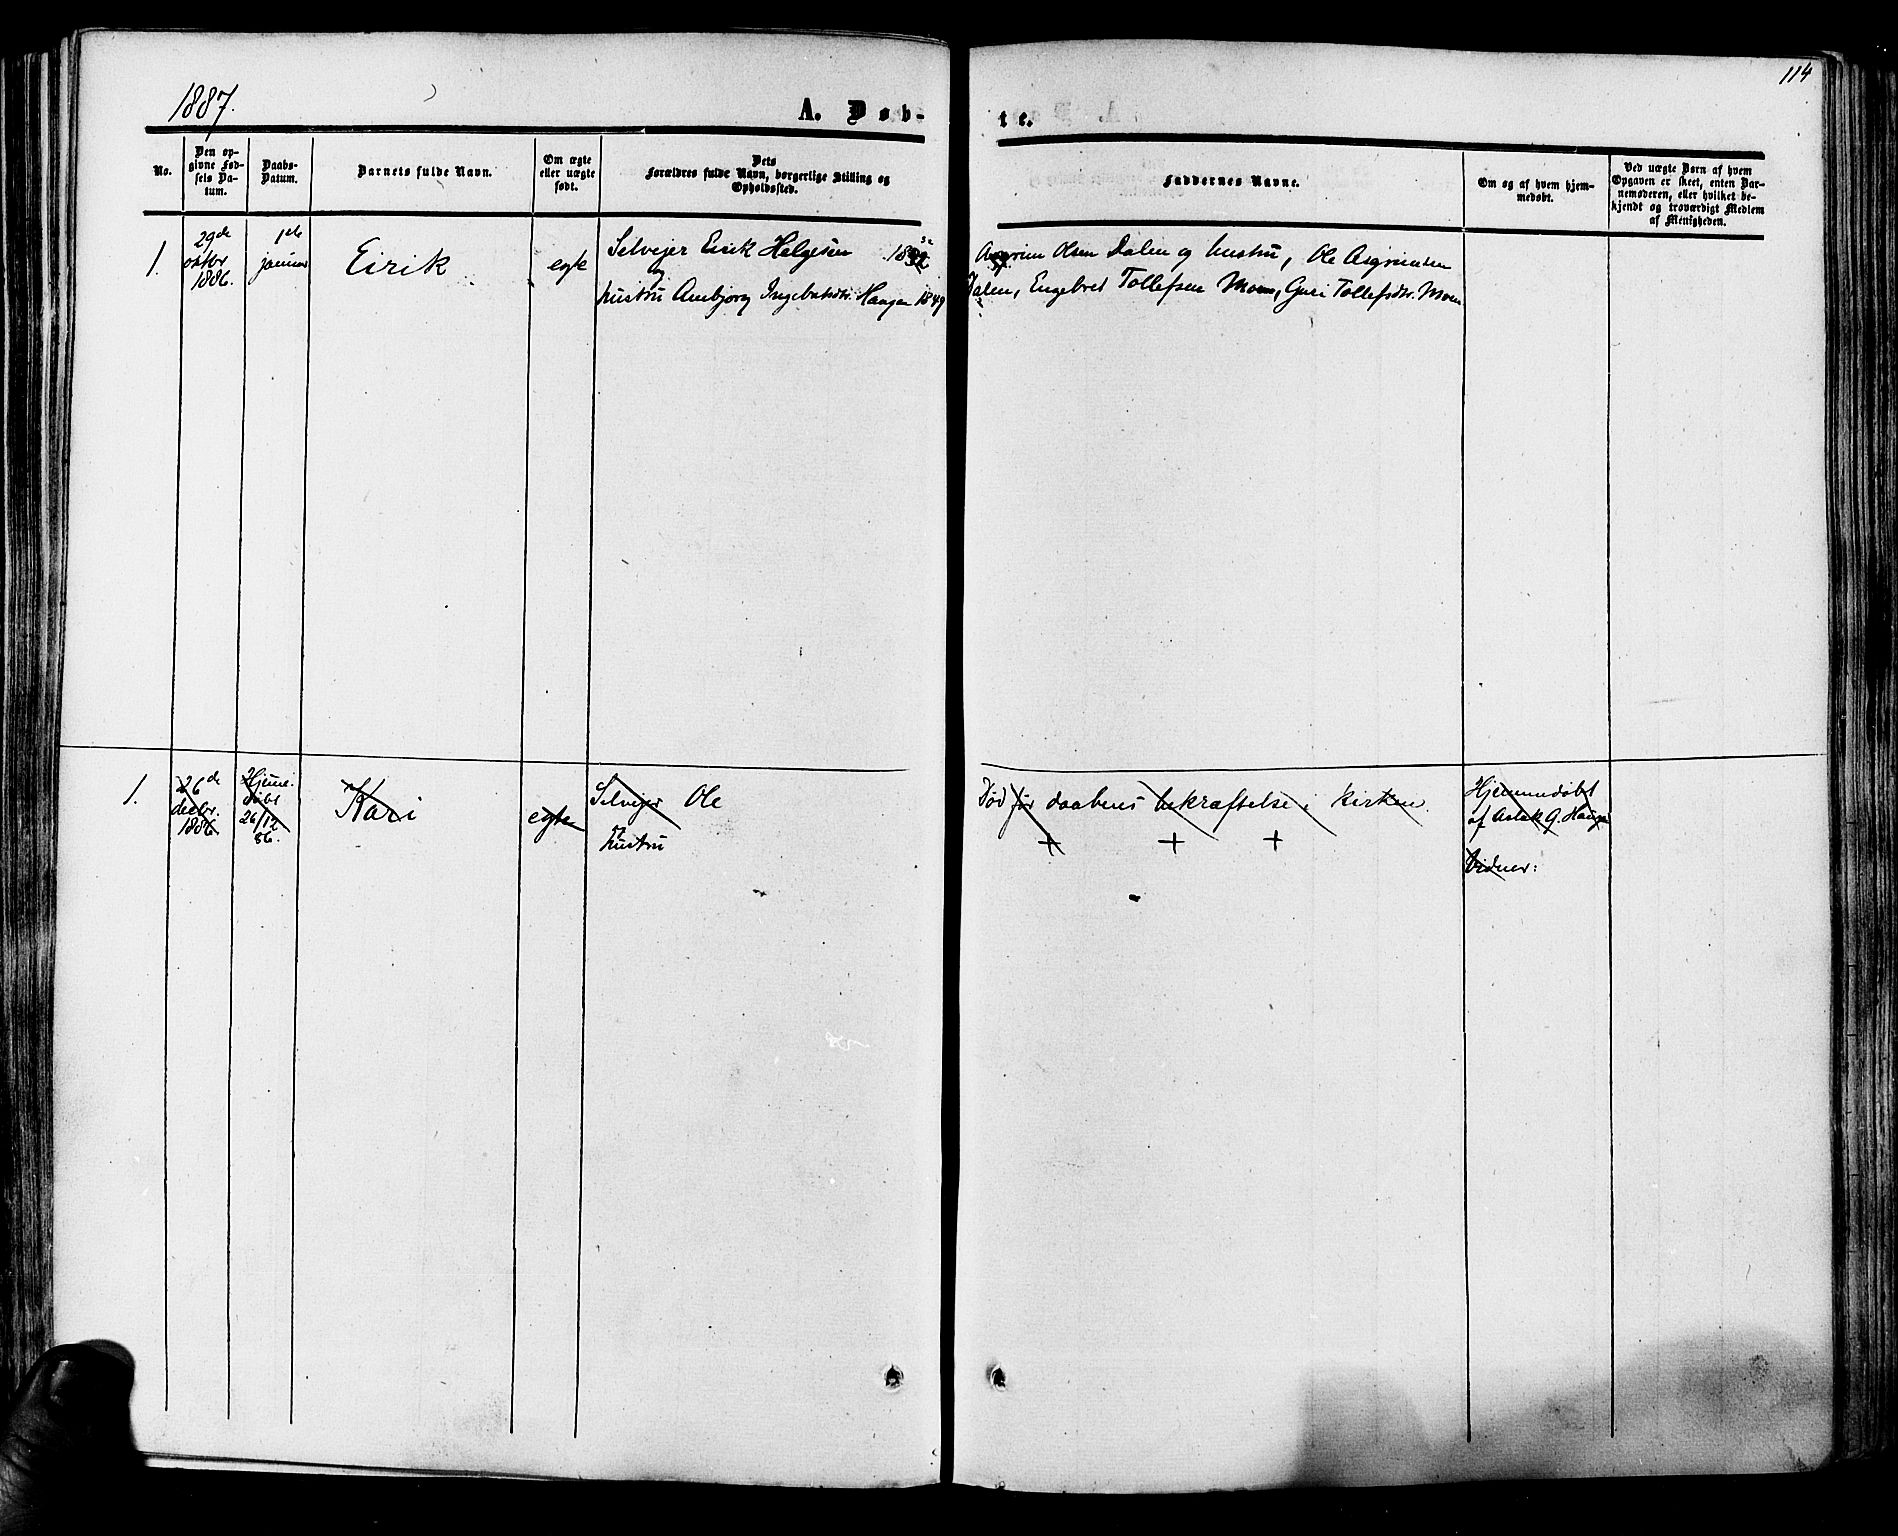 1887.
A. Døb-
te.
114
No.
Den op-
givne Fød-
sels Da-
tum.
Daabs-
Datum.
Barnets fulde Navn.
Om ægte
eller uægte
født.
Dets
Forældres fulde Navn, borgerlige Stilling og
Opholdssted.
Faddernes Navne.
Om og af hvem hjem-
medøbt.
Ved uægte Børn af hvem
Opgaven er skeet, enten Bar-
nemoderen, eller hvilket be-
kjendt og troværdigt Medlem
af Menigheden.
1.
29de
oktbr
1886.
1ste
januar
Eirik
egte
Selvejer Eirik Helgesen
og
hustru Ambjorg Ingebretsdtr. Haugen 1849
Asgrim Olsen Dalen og hustru, Ole Asgrimsen
Dalen, Engebret Tollefsen Moen, Guri Tollefsdtr. Moen
1.
26de
decbr.
1886
Hjeme-
døbt
26/12
86.
Kari
egte
Selvejer Ole
og
hustru
Død før daabens bekræftelse i kirken.
+ + +
Hjemmedøbt
af Aslak G. Hauge
Vidner: